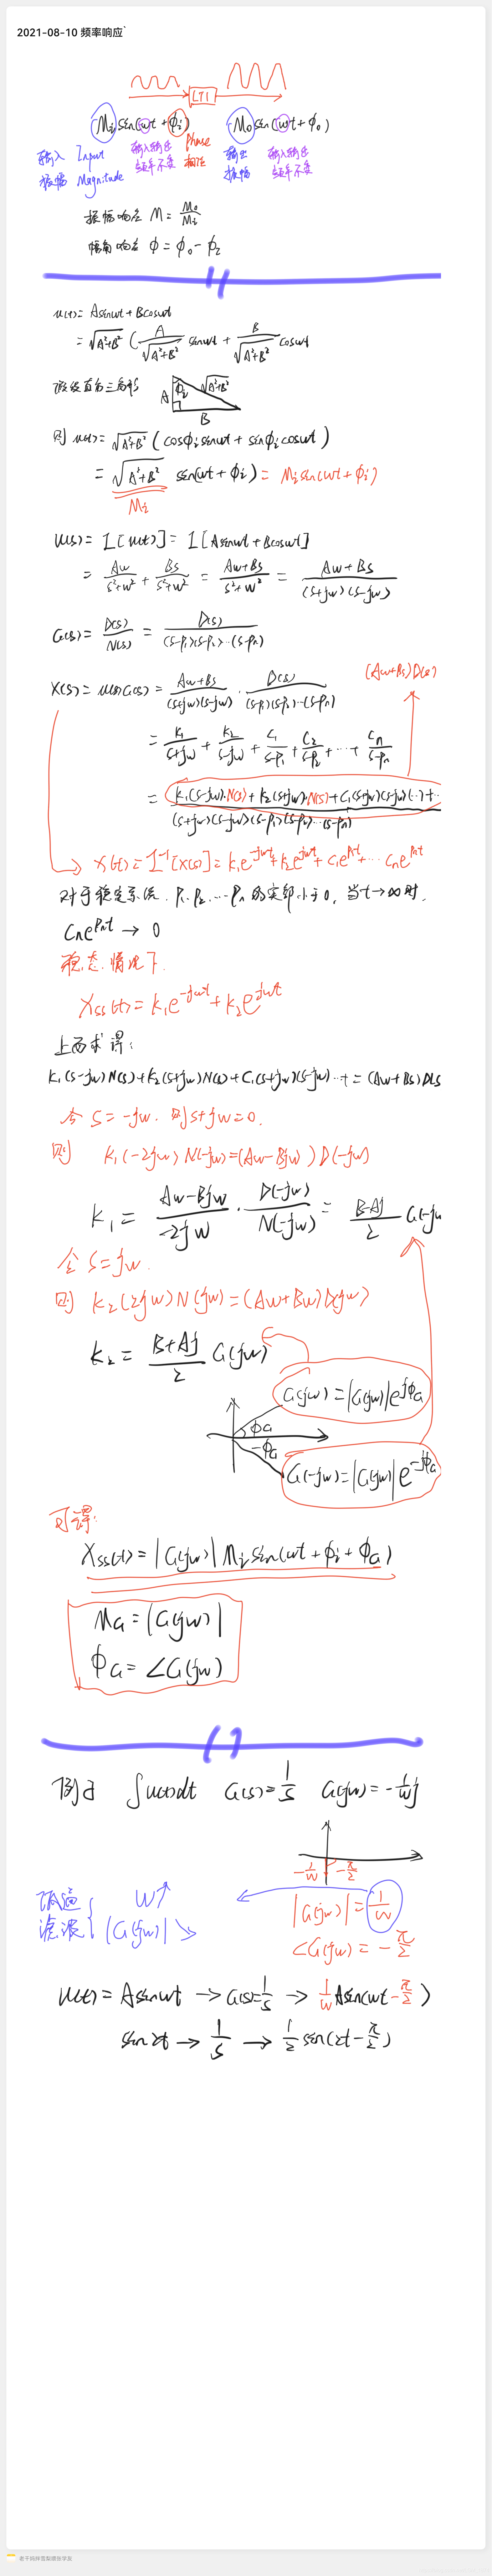 2021-08-10 频率响应`
LTI
Mi sin(wt + ϕi) Mo sin(wt + ϕo)
输入 Input 输入输出 phase 输出 输入输出
振幅 Magnitude 频率不变 相位 振幅 频率不变
振幅响应 M = Mo/Mi
幅角响应 ϕ = ϕo - ϕi
u(t) = Asinwt + Bcoswt
= √(A²+B²) ( A/√(A²+B²) sinwt + B/√(A²+B²) coswt
假设直角三角形 A ϕi √(A²+B²) B
则 u(t) = √(A²+B²) ( cosϕi sinwt + sinϕi coswt )
= √(A²+B²) sin(wt + ϕi) = Mi sin(wt + ϕi)
Mi
U(s) = L[u(t)] = L[Asinwt + Bcoswt]
= Aw/(s²+w²) + Bs/(s²+w²) = (Aw+Bs)/(s²+w²) = (Aw+Bs)/((s+jw)(s-jw))
G(s) = D(s)/N(s) = D(s)/((s-p1)(s-p2)···(s-pn))
(Aw+Bs)D(s)
X(s) = U(s)G(s) = (Aw+Bs)/((s+jw)(s-jw)) · D(s)/((s-p1)(s-p2)···(s-pn))
= k1/(s+jw) + k2/(s-jw) + C1/(s-p1) + C2/(s-p2) + ··· + Cn/(s-pn)
= (k1(s-jw)·N(s) + k2(s+jw)·N(s) + C1(s+jw)(s-jw)(···) + ···)/((s+jw)(s-jw)(s-p1)(s-p2)···(s-pn))
X(t) = L⁻¹[X(s)] = k1e^(-jwt) + k2e^(jwt) + C1e^(p1t) + ··· Cne^(pnt)
对于稳定系统, p1, p2 ··· pn 的实部小于0, 当t→∞时,
Cne^(pnt) → 0
稳态情况下.
Xss(t) = k1e^(-jwt) + k2e^(jwt)
上面求得:
k1(s-jw)N(s) + k2(s+jw)N(s) + C1(s+jw)(s-jw)···+ = (Aw+Bs)D(s
令 s = -jw, 则 s+jw = 0.
则 k1(-2jw)N(-jw) = (Aw-Bjw)D(-jw)
k1 = (Aw-Bjw)/(-2jw) · D(-jw)/N(-jw) = (B-Aj)/2 G(-jw
令 s = jw.
则 k2(2jw)N(jw) = (Aw+Bw)D(jw)
k2 = (B+Aj)/2 G(jw)
G(jw) = |G(jw)|e^(jϕG)
ϕG
-ϕG
G(-jw) = |G(jw)|e^(-jϕG)
可得:
Xss(t) = |G(jw)| Mi sin(wt + ϕi + ϕG)
MG = |G(jw)|
ϕG = ∠G(jw)
例子 ∫u(t)dt G(s) = 1/s G(jw) = -1/w j
-1/w -π/2
低通 w↑ |G(jw)| = 1/w
滤波 |G(jw)| ↘ ∠G(jw) = -π/2
u(t) = Asinwt → G(s) = 1/s → 1/w Asin(wt - π/2)
sin2t → 1/s → 1/2 sin(2t - π/2)